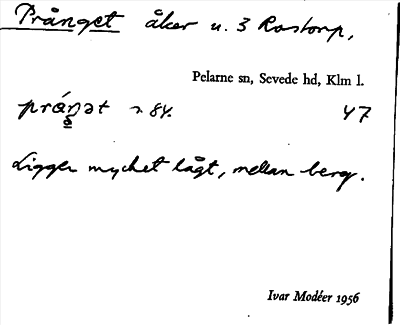 Prånget åker u. 3 Rostorp,
Pelarne sn, Sevede hd, Klm l.
prán̥ət 84. 47
Ligger mycket lågt, mellan berg.
Ivar Modéer 1956